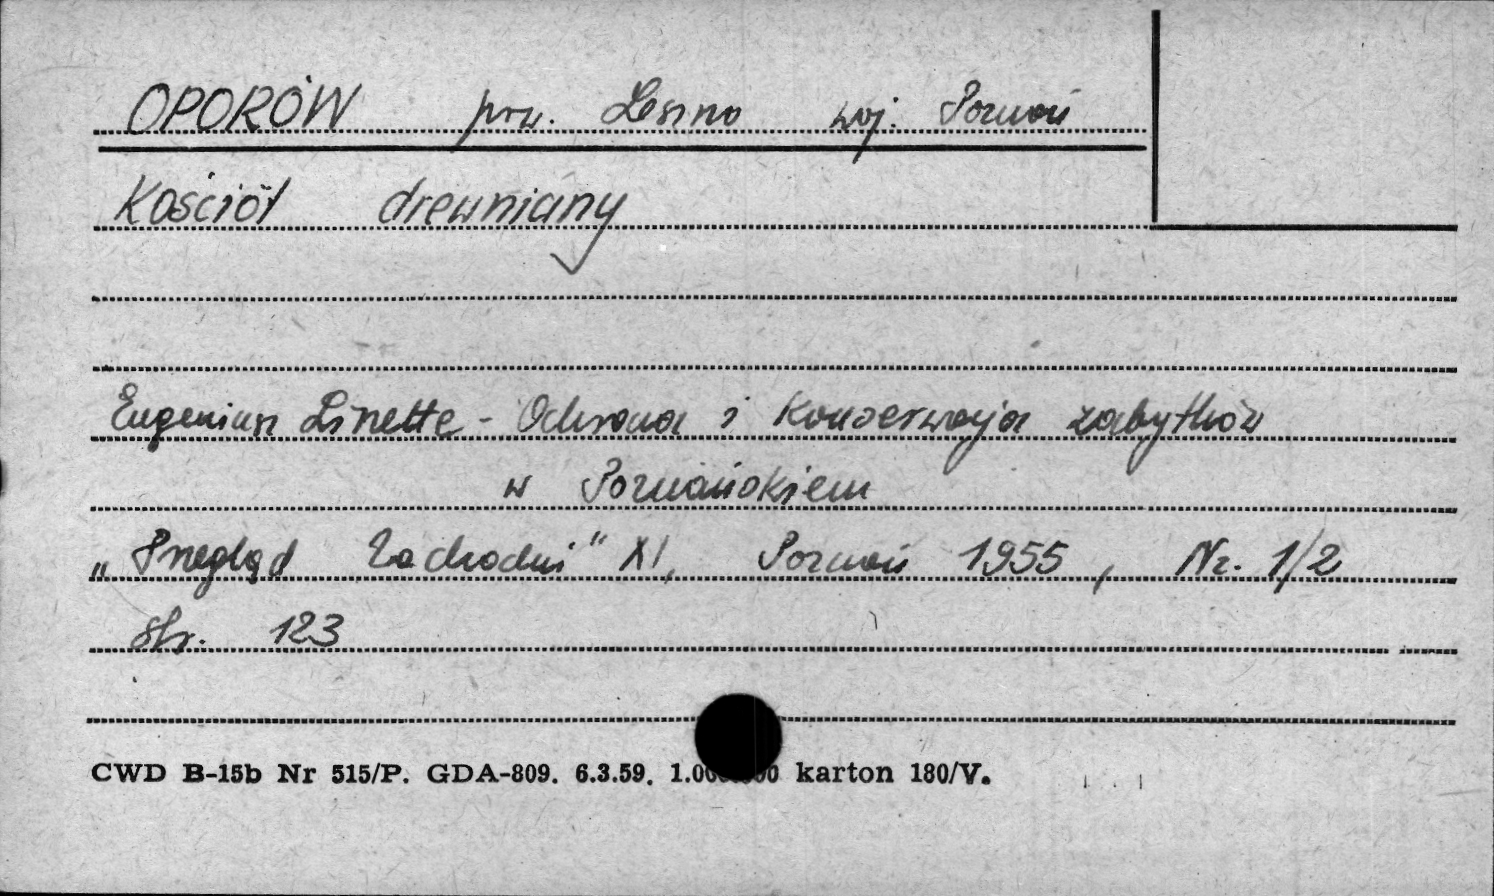 OPORÓW pow. Leszno woj. Poznań
Kościół drewniany
Eugeniusz Linette - Ochrona i Konserwacja zabytków
w Poznańskiem
„Przegląd Zachodni" XI, Poznań 1955, Nr. 1/2
str. 123
CWD B-15b Nr 515/P. GDA-809. 6.3.59. karton 180/V.